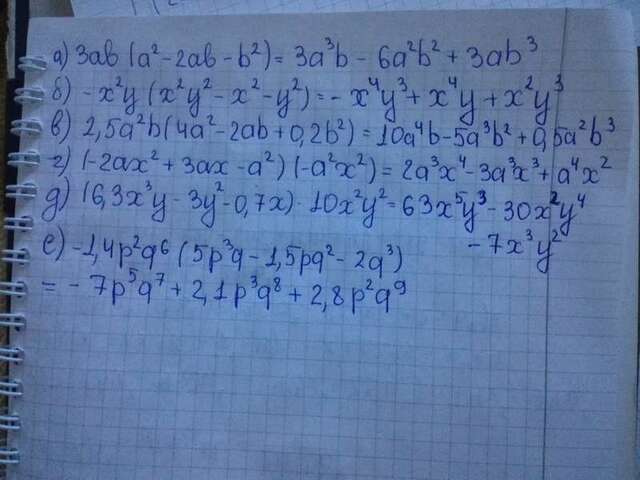 а) 3ab (a² - 2ab - b²) = 3a³b - 6a²b² + 3ab³
б) - x²y (x²y² - x² - y²) = - x⁴y³ + x⁴y + x²y³
в) 2,5a²b (4a² - 2ab + 0,2b²) = 10a⁴b - 5a³b² + 0,5a²b³
г) (-2ax² + 3ax - a²) (-a²x²) = 2a³x⁴ - 3a³x³ + a⁴x²
д) (6,3x³y - 3y² - 0,7x) · 10x²y² = 63x⁵y³ - 30x²y⁴
- 7x³y²
е) -1,4p²q⁶ (5p³q - 1,5pq² - 2q³)
= - 7p⁵q⁷ + 2,1p³q⁸ + 2,8p²q⁹